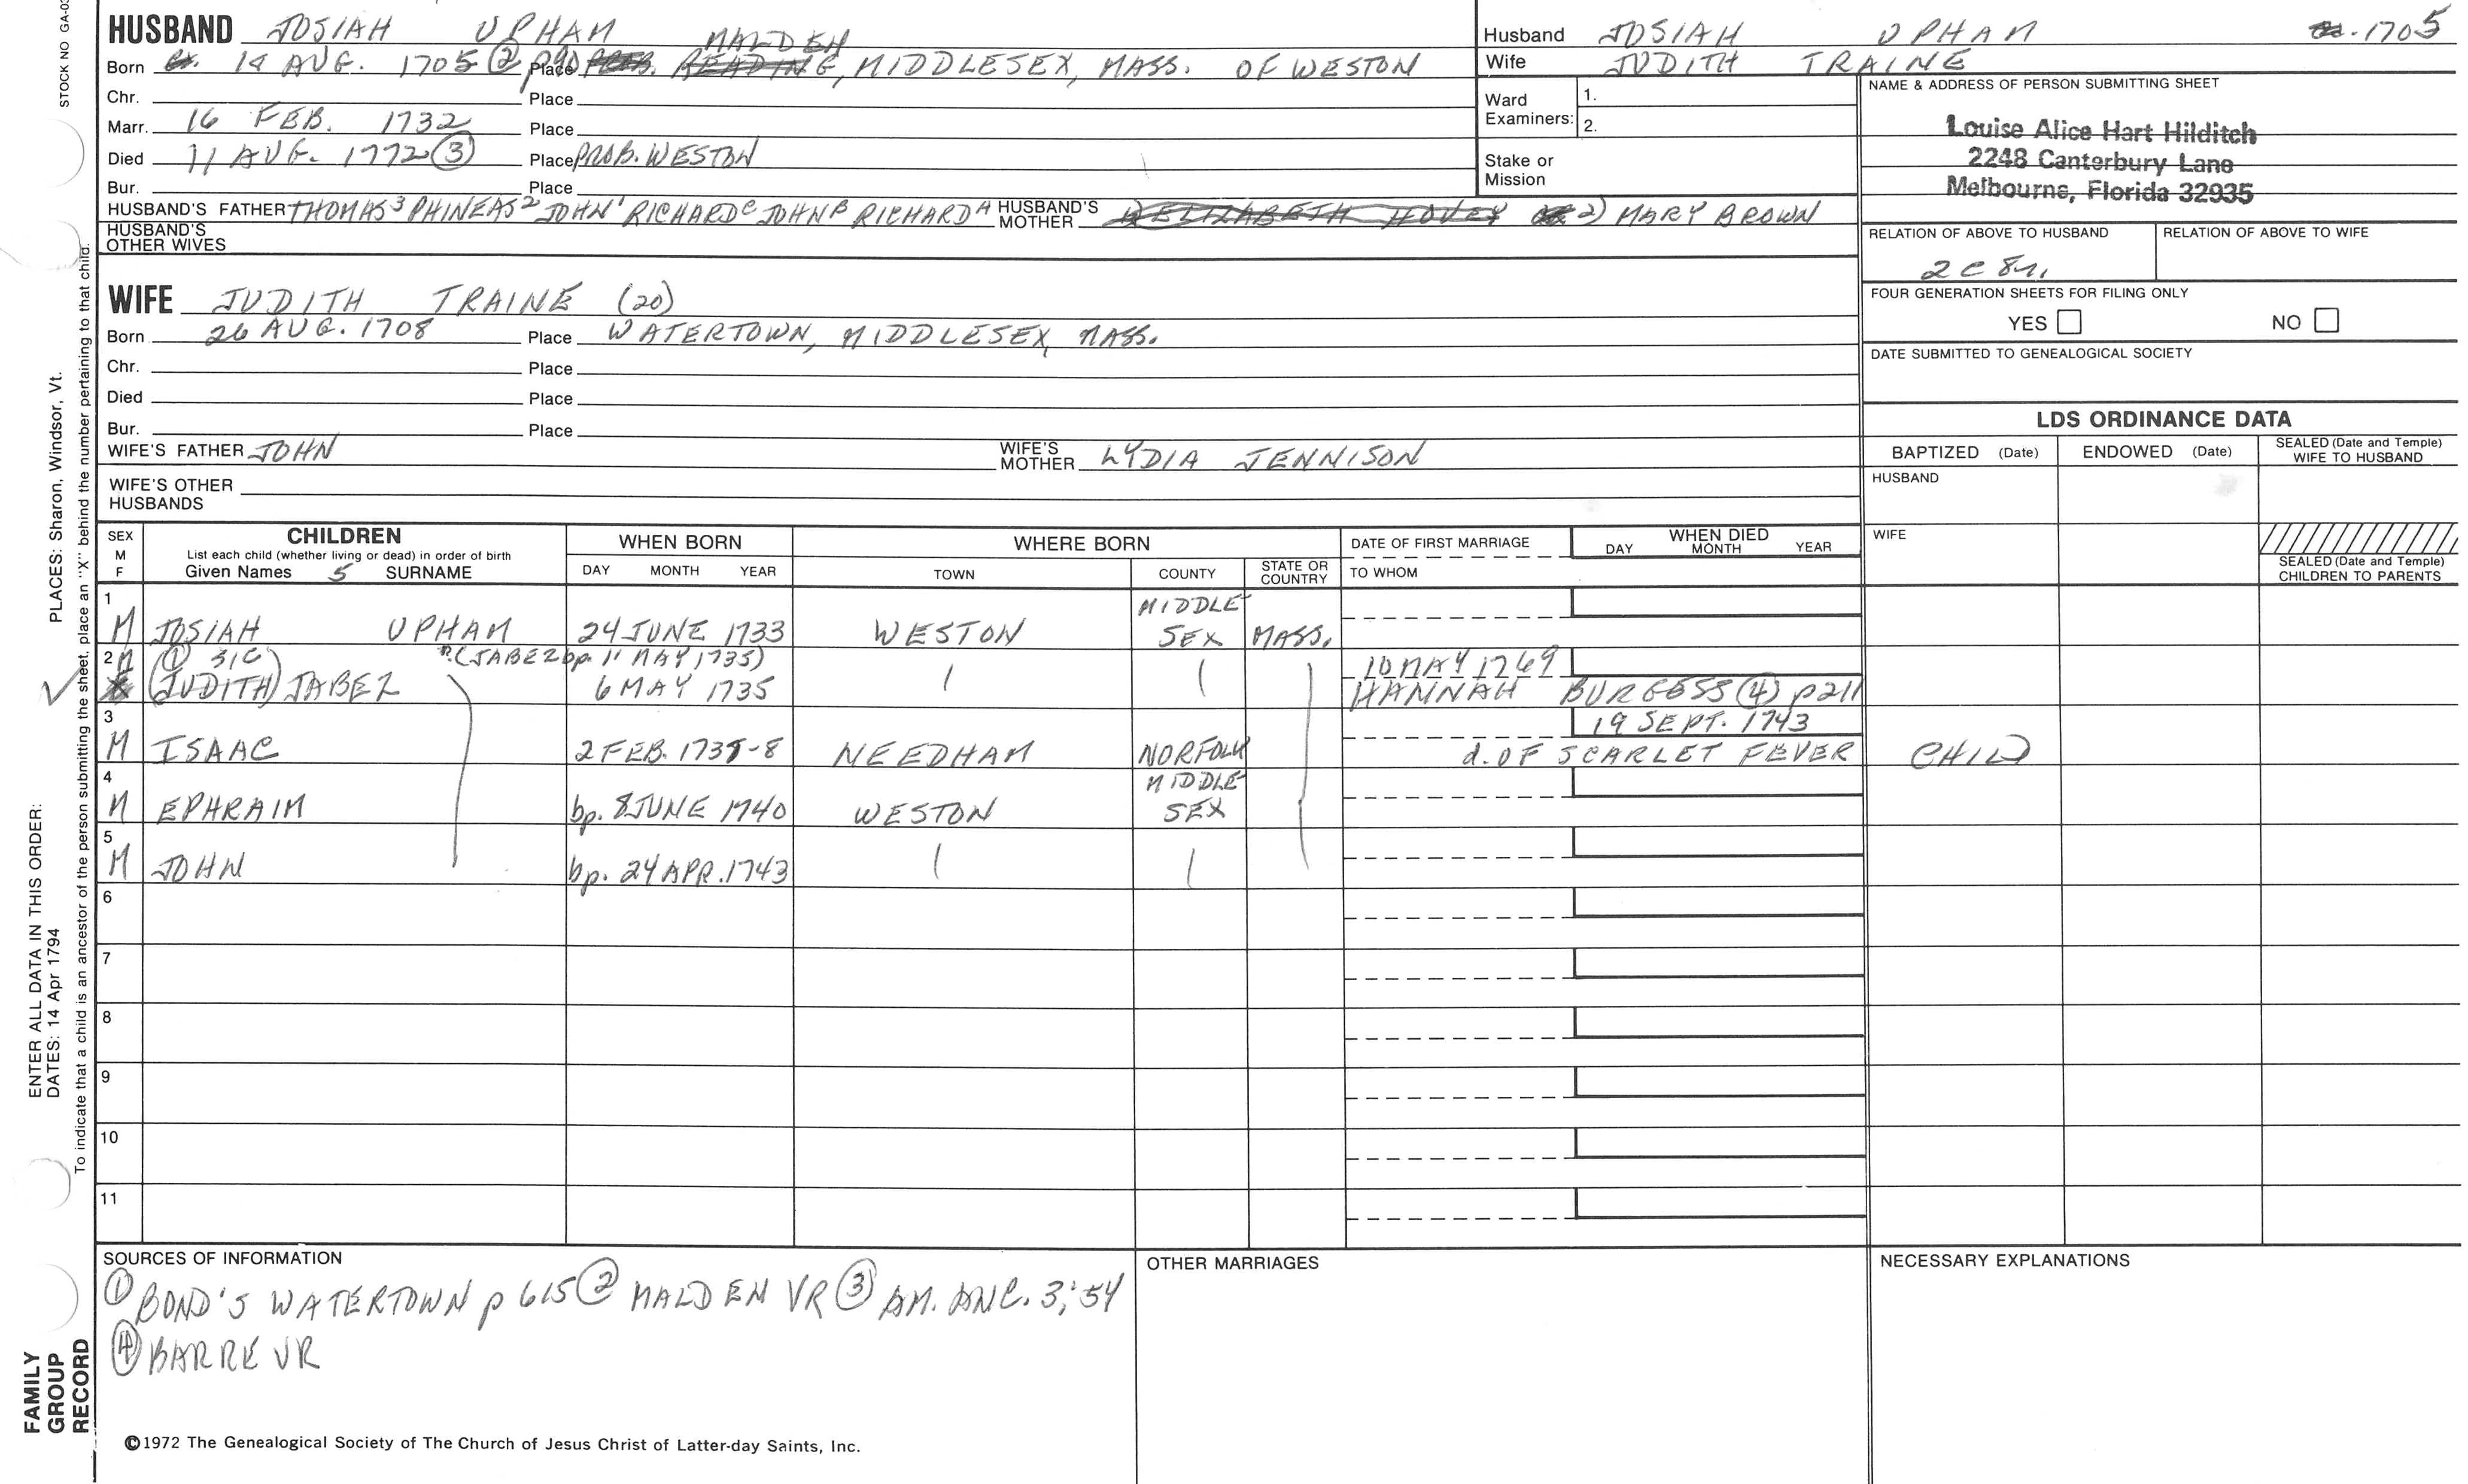 HUSBAND JOSIAH UPHAM
MALDEN
Born 14 AUG. 1705 ② p90 Place PROB. READING, MIDDLESEX, MASS. OF WESTON
Chr. Place
Marr. 16 FEB. 1732 Place
Died 11 AUG. 1772 ③ Place PROB. WESTON
Bur. Place
HUSBAND'S FATHER THOMAS³ PHINEAS² JOHN¹ RICHARD^C JOHN^B RICHARD^A HUSBAND'S MOTHER ELIZABETH HOVEY 2) MARY BROWN
HUSBAND'S OTHER WIVES
Husband JOSIAH UPHAM 1705
Wife JUDITH TRAINE
Ward Examiners: 1.
2.
Stake or Mission
NAME & ADDRESS OF PERSON SUBMITTING SHEET
Louise Alice Hart Hilditch
2248 Canterbury Lane
Melbourne, Florida 32935
RELATION OF ABOVE TO HUSBAND RELATION OF ABOVE TO WIFE
2 C 8 r.
FOUR GENERATION SHEETS FOR FILING ONLY
YES NO
DATE SUBMITTED TO GENEALOGICAL SOCIETY
WIFE JUDITH TRAINE (20)
Born 26 AUG. 1708 Place WATERTOWN, MIDDLESEX, MASS.
Chr. Place
Died Place
Bur. Place
WIFE'S FATHER JOHN WIFE'S MOTHER LYDIA JENNISON
WIFE'S OTHER HUSBANDS
LDS ORDINANCE DATA
BAPTIZED (Date) ENDOWED (Date) SEALED (Date and Temple) WIFE TO HUSBAND
HUSBAND
WIFE
SEALED (Date and Temple) CHILDREN TO PARENTS
SEX M F
CHILDREN
List each child (whether living or dead) in order of birth
Given Names 5 SURNAME
WHEN BORN
DAY MONTH YEAR
WHERE BORN
TOWN COUNTY STATE OR COUNTRY
DATE OF FIRST MARRIAGE
TO WHOM
WHEN DIED
DAY MONTH YEAR
1 M JOSIAH UPHAM 24 JUNE 1733 WESTON MIDDLESEX MASS.
2 M ① SIC (JABEZ bp. 11 MAY 1735) 10 MAY 1769
(JUDITH) JABEZ 6 MAY 1735 HANNAH BURGESS ④ p211
3 19 SEPT. 1743
M ISAAC 2 FEB. 1737-8 NEEDHAM NORFOLK d. OF SCARLET FEVER CHILD
4 M EPHRAIM bp. 8 JUNE 1740 WESTON MIDDLESEX
5 M JOHN bp. 24 APR. 1743
6
7
8
9
10
11
SOURCES OF INFORMATION
① BOND'S WATERTOWN p 615 ② MALDEN VR ③ AM. ANC. 3:54
④ BARRE VR
OTHER MARRIAGES
NECESSARY EXPLANATIONS
©1972 The Genealogical Society of The Church of Jesus Christ of Latter-day Saints, Inc.
STOCK NO GA-03
PLACES: Sharon, Windsor, Vt.
To indicate that a child is an ancestor of the person submitting the sheet, place an "X" behind the number pertaining to that child.
ENTER ALL DATA IN THIS ORDER:
DATES: 14 Apr 1794
FAMILY GROUP RECORD